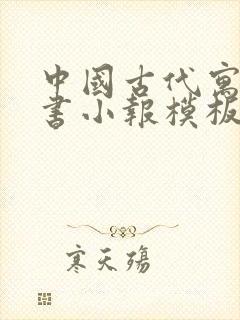 中國古代寓
書小報模板
寒天殤